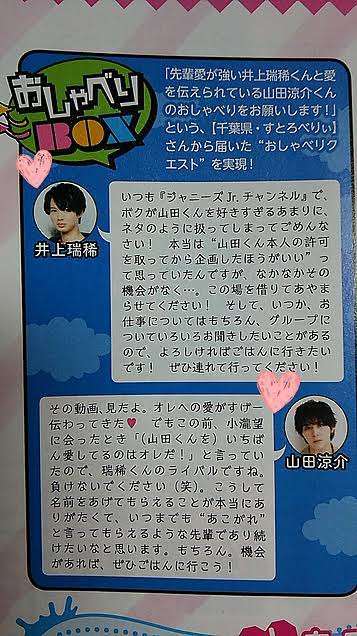 おしゃべり
BOX
「先輩愛が強い井上瑞稀くんと愛
を伝えられている山田涼介くん
のおしゃべりをお願いします!」
という、【千葉県・すとろべりぃ】
さんから届いた“おしゃべりリク
エスト”を実現!
井上瑞稀
いつも『ジャニーズJr.チャンネル』で、
ボクが山田くんを好きすぎるあまりに、
ネタのように扱ってしまってごめんな
さい! 本当は“山田くん本人の許可
を取ってから企画したほうがいい”っ
て思っていたんですが、なかなかその
機会がなく…。この場を借りてあやま
らせてください! そして、いつか、お
仕事についてはもちろん、グループに
ついていろいろお聞きしたいことがある
ので、よろしければごはんに行きたい
です! ぜひ連れて行ってください!
その動画、見たよ。オレへの愛がすげー
伝わってきた♥ でもこの前、小瀧望
に会ったとき「(山田くんを)いちばん
愛してるのはオレだ!」と言ってい
たので、瑞稀くんのライバルですね。
負けないでください(笑)。こうして
名前をあげてもらえることが本当にあ
りがたくて、いつまでも“あこがれ”
と言ってもらえるような先輩であり続
けたいなと思います。もちろん。機会
があれば、ぜひごはんに行こう!
山田涼介